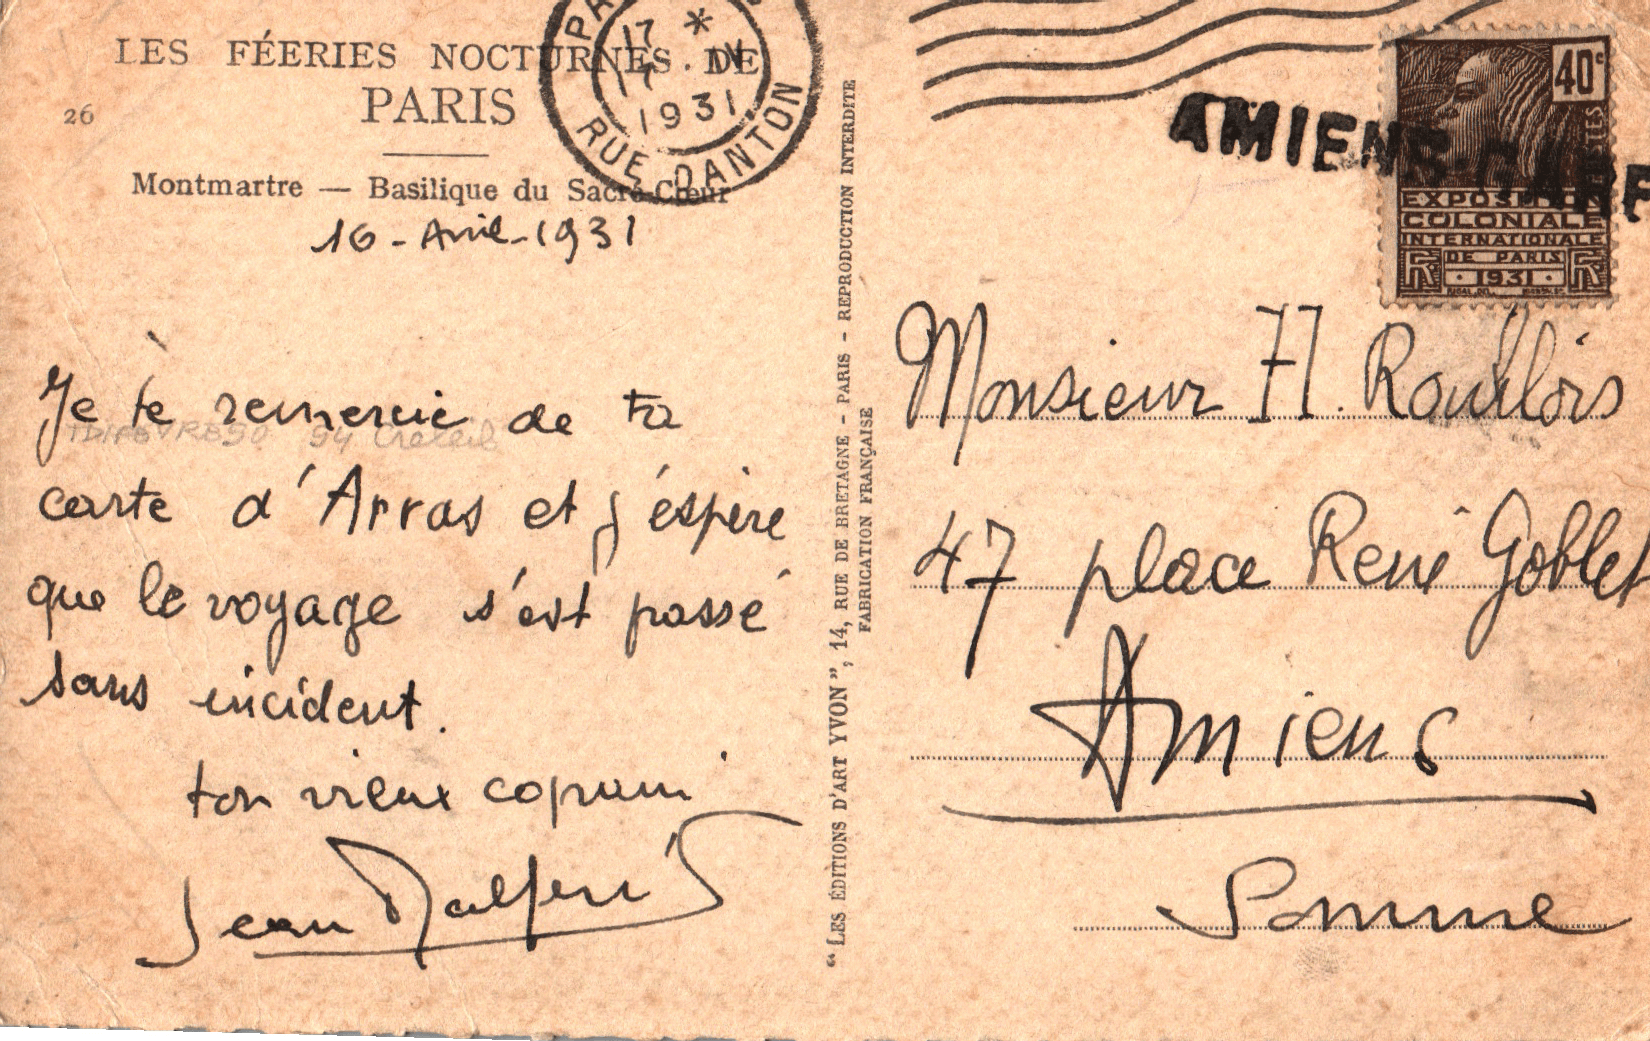 LES FÉERIES NOCTURNES DE
PARIS
26
Montmartre — Basilique du Sacré-Cœur
16 - Avril - 1931
Je te remercie de ta
carte d'Arras et j'éspère
que le voyage s'est passé
sans incident.
ton vieux copain
Jean
17 *
17 . IV
1931
RUE DANTON
"LES ÉDITIONS D'ART YVON", 14, RUE DE BRETAGNE - PARIS - REPRODUCTION INTERDITE
FABRICATION FRANÇAISE
AMIENS-GARE
40c
POSTES
EXPOSITION
COLONIALE
INTERNATIONALE
DE PARIS
· 1931 ·
Monsieur
47 place René Goblet
Amiens
Somme